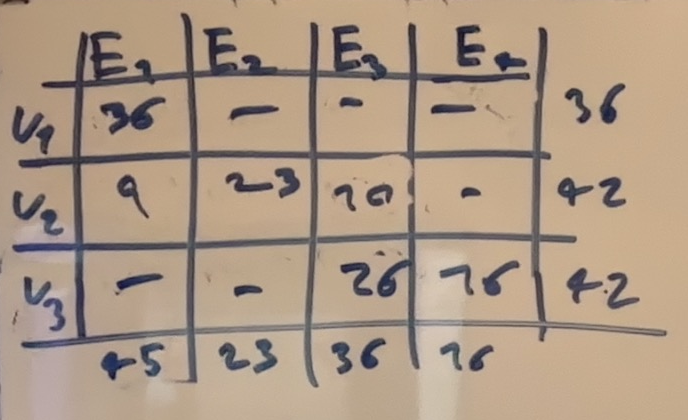 E1 E2 E3 E4
V1 36 - - - 36
V2 9 23 10 - 42
V3 - - 26 16 42
45 23 36 16